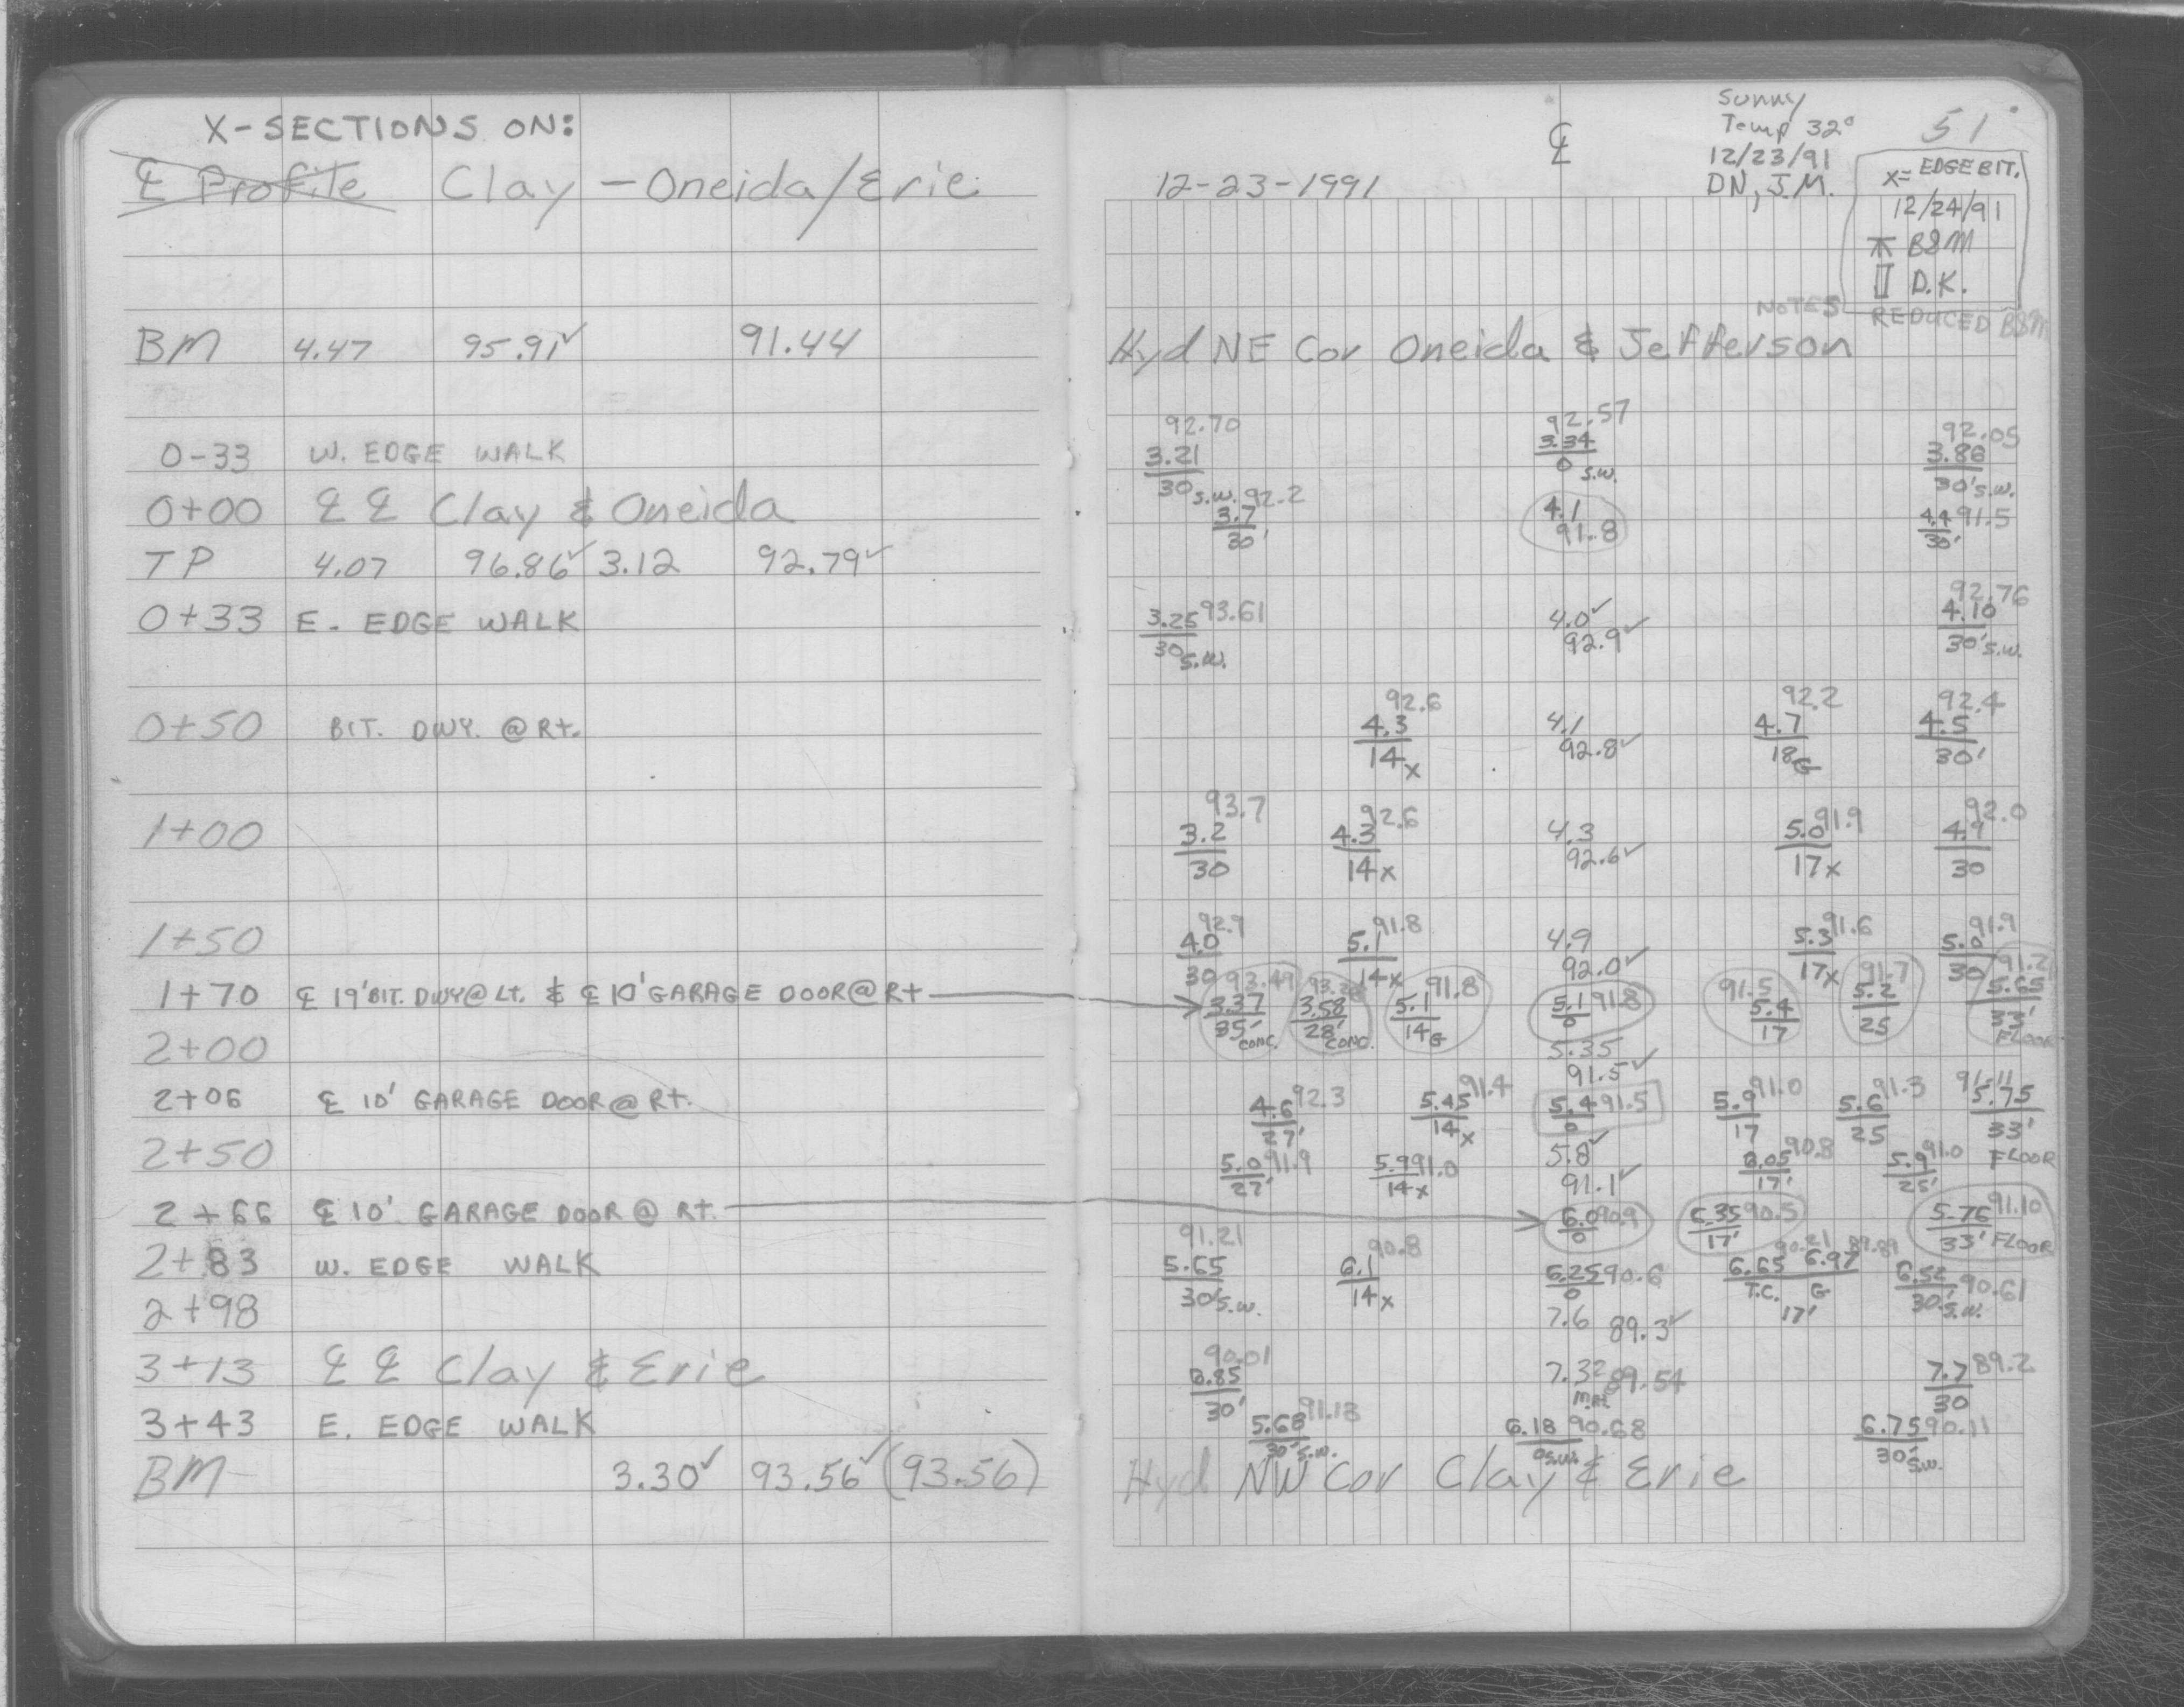 X-SECTIONS ON:
℄ Profile Clay - Oneida/Erie
BM 4.47 95.91✓ 91.44
0-33 W. EDGE WALK
0+00 ℄ ℄ Clay & Oneida
TP 4.07 96.86✓ 3.12 92.79✓
0+33 E. EDGE WALK
0+50 BIT. DWY. @ Rt.
1+00
1+50
1+70 ℄ 19' BIT. DWY @ Lt. & ℄ 10' GARAGE DOOR @ Rt
2+00
2+06 ℄ 10' GARAGE DOOR @ Rt.
2+50
2+66 ℄ 10' GARAGE DOOR @ Rt.
2+83 W. EDGE WALK
2+98
3+13 ℄ ℄ Clay & Erie
3+43 E. EDGE WALK
BM 3.30✓ 93.56✓ (93.56)
51
Sunny
Temp 32°
12/23/91
DN, J.M.
℄
12-23-1991
x= EDGE BIT.
12/24/91
⊼ B8M
D.K.
NOTES REDUCED B8M
Hyd NE Cor Oneida & Jefferson
92.70 92.57 92.05
3.21 3.34 3.86
30 S.W. 0 S.W. 30' S.W.
92.2 4.1 91.5
3.7 91.8 4.4
30' 30'
93.61 4.0✓ 92.76
3.25 92.9✓ 4.10
30 S.W. 30' S.W.
92.6 4.1 92.2 92.4
4.3 92.8✓ 4.7 4.5
14 x 18 G 30'
93.7 92.6 4.3 91.9 92.0
3.2 4.3 92.6✓ 5.0 4.9
30 14 x 17 x 30
92.9 91.8 4.9 91.6 91.9
4.0 5.1 92.0✓ 5.3 5.0
30 14 x 17 x 30
93.49 91.8 91.8 91.5 91.7 91.21
3.37 3.58 5.1 5.1 5.4 5.2 5.65
35' CONC. 28' CONC. 14 G 0 17 25 33' FLOOR
5.35
91.5✓
92.3 91.4 91.5 91.0 91.3 91.11
4.6 5.45 5.4 5.9 5.6 5.75
27' 14 x 0 17 25 33' FLOOR
91.9 91.0 5.8✓ 90.8 91.0
5.0 5.9 91.1✓ 6.05 5.9
27' 14 x 17' 25'
90.9 90.5 91.10
6.0 6.35 5.76
0 17' 33' FLOOR
91.21 90.8 90.6 90.21 89.89 90.61
5.65 6.1 6.25 6.65 6.97 6.52
30' S.W. 14 x 0 T.C. G 17' 30' S.W.
7.6 89.3✓
90.01 7.32 89.54 89.2
6.85 M.H. 7.7
30' 30
91.18 90.68 90.11
5.68 6.18 6.75
30' S.W. 0 S.W. 30' S.W.
Hyd NW Cor Clay & Erie